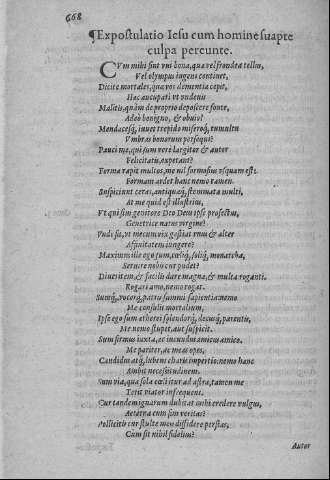 668
¶Expostulatio Iesu cum homine suapte
culpa pereunte.
CVm mihi sint vni bona, quæ vel frondea tellus,
Vel olympus ingens continet,
Dicite mortales, quæ vos dementia cepit,
Hæc aucupari vt vndeuis
Malitis, quàm de proprio deposcere fonte,
Adeò benigno, & obuio?
Mendacesq́; iuuet trepido miserosq́; tumultu
Vmbras bonorum persequi?
Pauci me, qui sum veræ largitor & autor
Felicitatis, expetant?
Forma rapit multos, me nil formosius vsquam est:
Formam ardet hanc nemo tamen.
Suspiciunt ceras, antiquáq́; stemmata multi,
At me quid est illustrius,
Vt qui sim genitore Deo Deus ipse profectus,
Genetrice natus virgine?
Vnde fit, vt mecum vix gestiat vnus & alter
Affinitatem iungere?
Maximus ille ego sum, cœliq́; soliq́; monarcha,
Seruire nobis cur pudet?
Diuitem, & facilis dare magna, & multa roganti.
Rogari amo, nemo rogat.
Sumq́; vocorq́; patris summi sapientia: nemo
Me consulit mortalium,
Ipse ego sum ætherei splendorq́; decusq́; parentis,
Me nemo stupet, aut suspicit.
Sum firmus iuxta, ac iucundus amicus amico.
Me pariter, ac meas opes,
Candidus atq́; lubens charis impertio: nemo hanc
Ambit necessitudinem.
Sum via, qua sola cœli itur ad astra, tamen me
Terit viator infrequens.
Cur tandem ignarum dubitat mihi credere vulgus,
Aeterna cum sim veritas?
Pollicitis cur stulte meis diffidere perstas,
Cùm sit nihil fidelius?
Autor